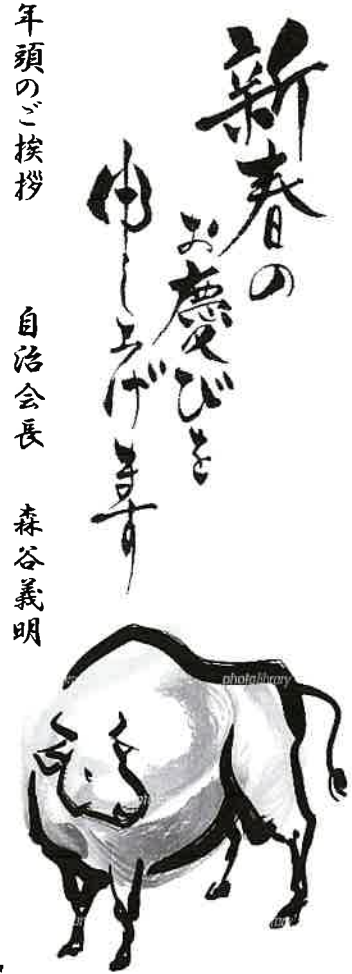 新春の
お慶びを
申し上げます
年頭のご挨拶　自治会長　森谷義明
photolibrary